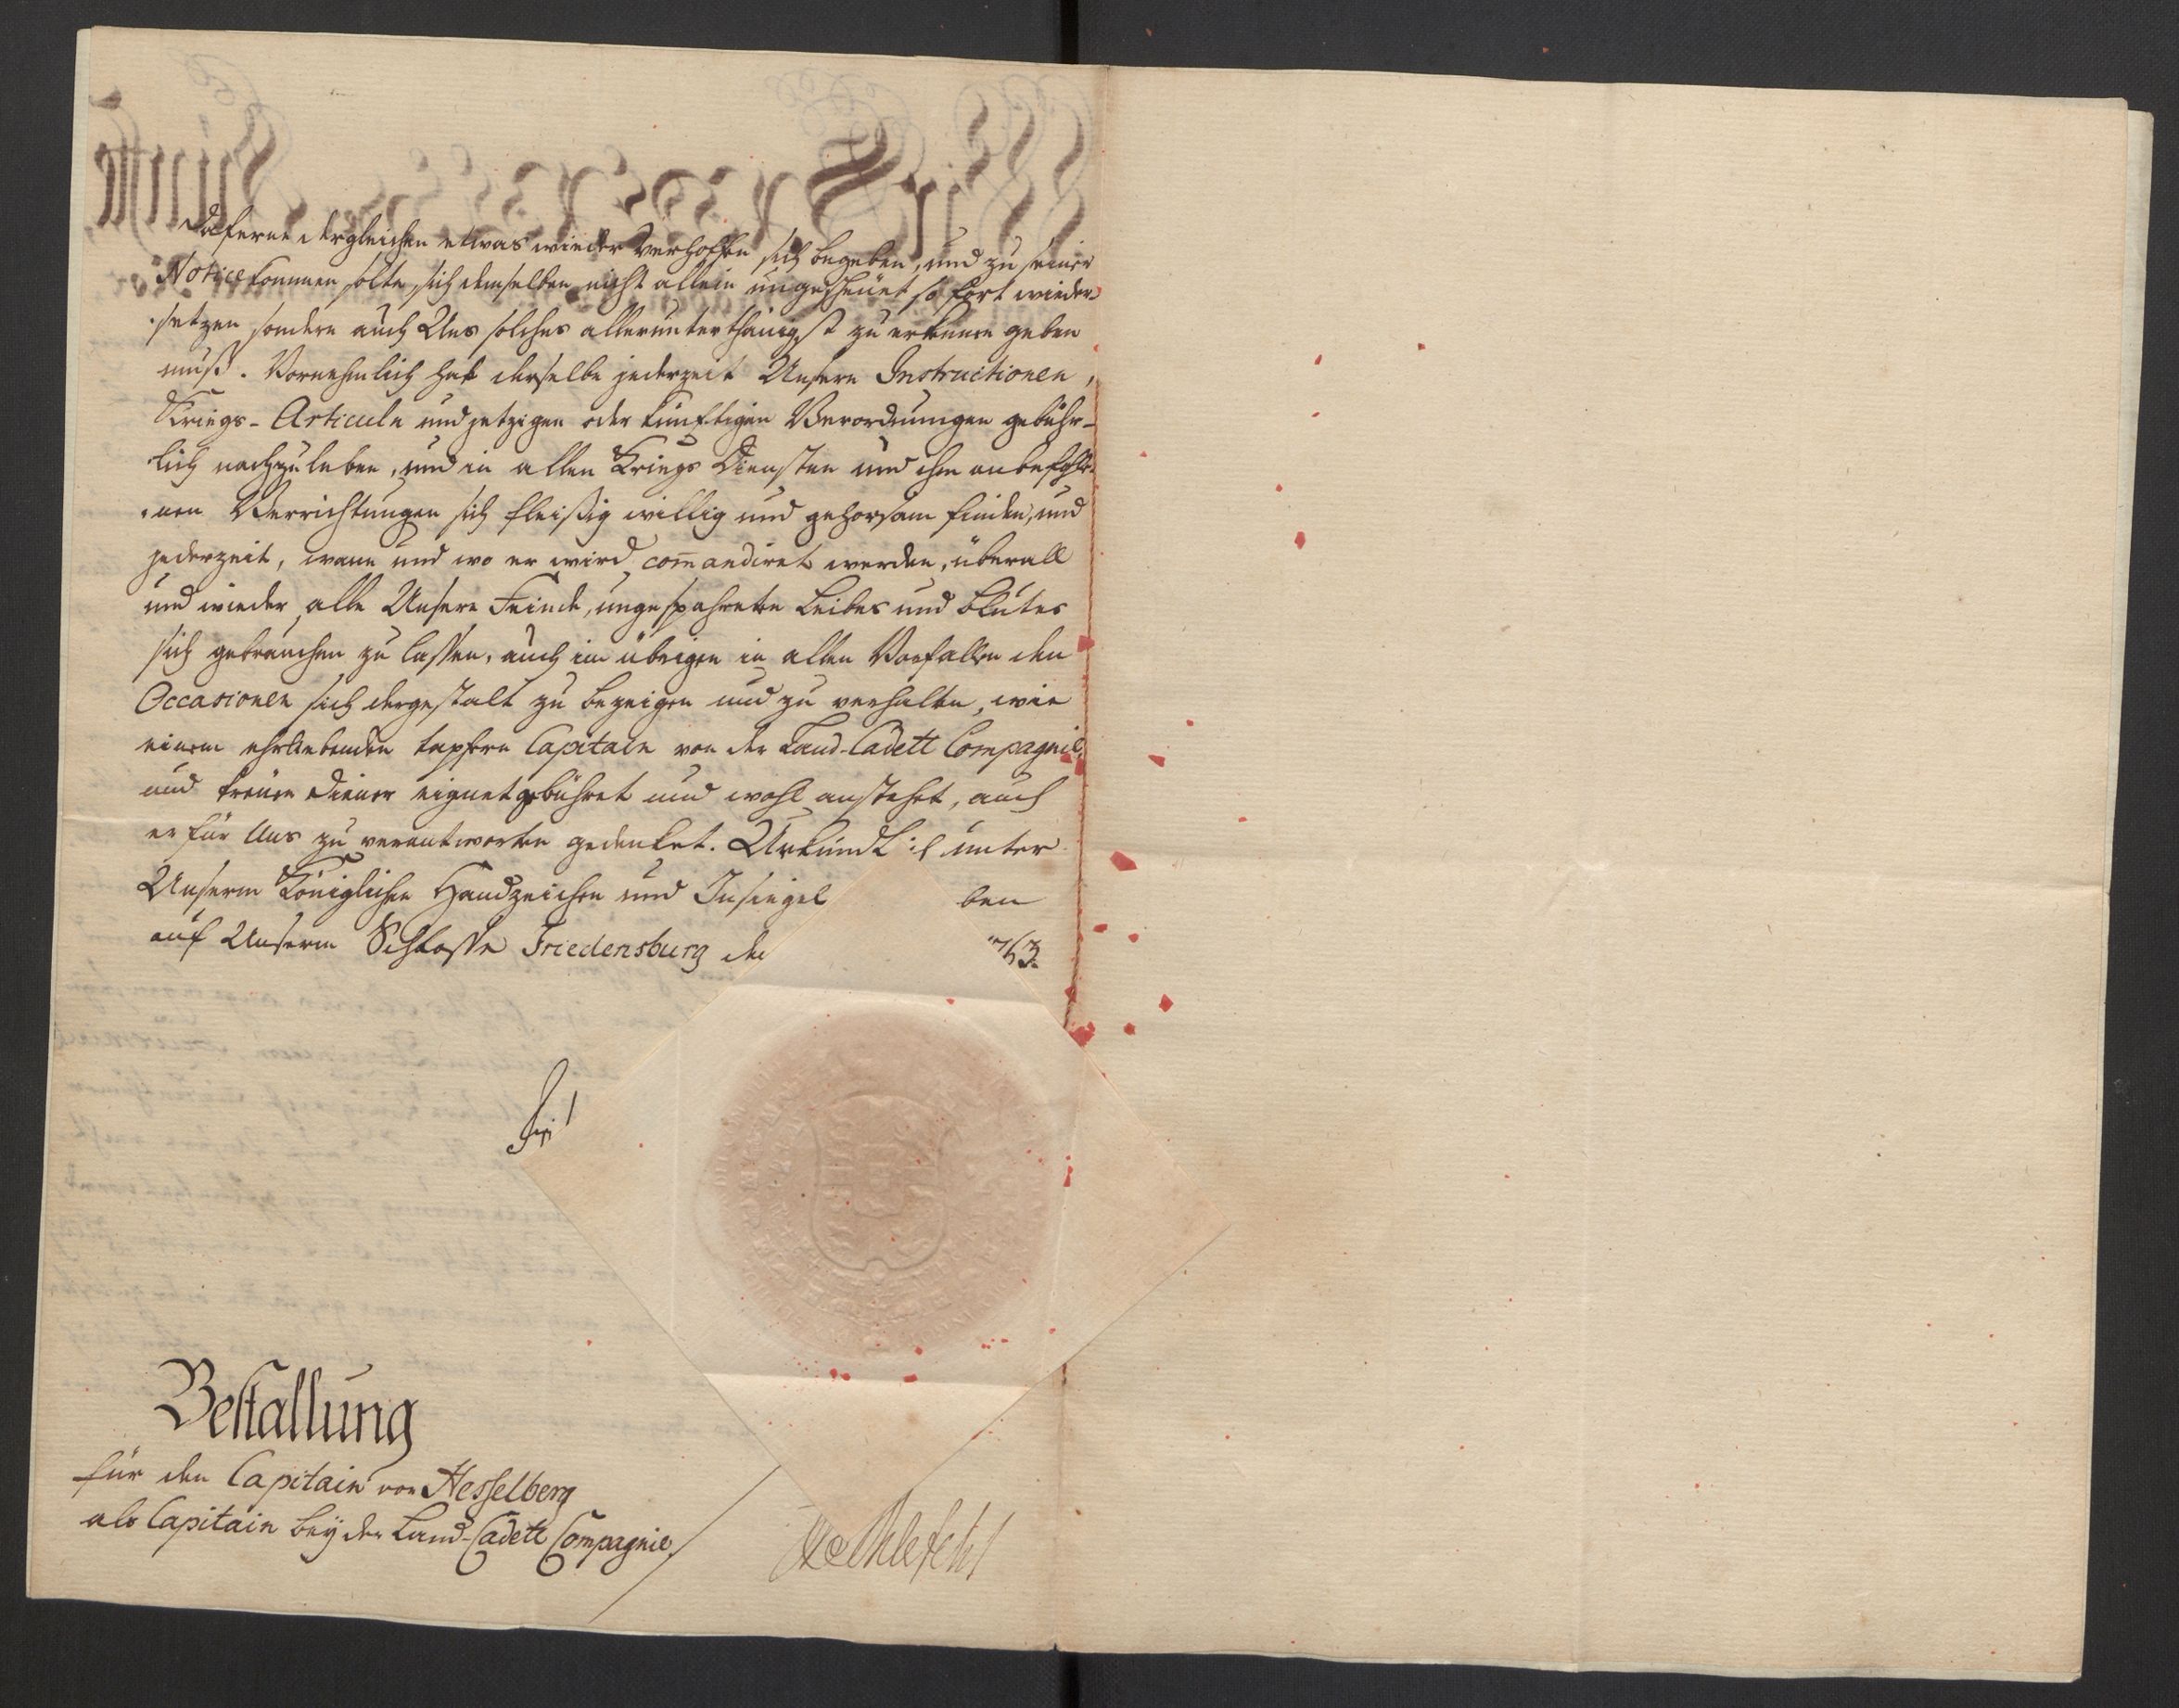 daferne dergleichen etwas wieder Verhoffen sich begeben, und zu seiner
Notice kommen solte, sich demselben nicht allein ungescheuet so fort wieder-
setzen sondern auch Uns solches allerunterthänigst zu erkennen geben
muß. Vornehmlich hat derselbe jederzeit Unsern Instructionen,
Kriegs-Articuln und jetzigen oder künftigen Verordnungen gebühr-
lich nachzuleben, und in allen Kriegs Diensten und ihm anbefohle-
nen Verrichtungen sich fleißig willig und gehorsam finden, und
jederzeit, wann und wo er wird com̄andiret werden, überall
und wieder alle Unsere Feinde, ungespahreten Leibes und Blutes
sich gebrauchen zu lassen, auch im übrigen in allen Vorfallenden
Occasionen sich dergestalt zu bezeigen und zu verhalten, wie
einem ehrliebenden tapfern Capitain von der Land-Cadett Compagnie,
und treuen Diener eignet gebühret und wohl anstehet, auch
er für Uns zu verantworten gedenket. Uhrkundlich unter
Unserm Königlichen Handzeichen und Insiegel ben
auf Unserm Schlosse Friedensburg de 763.
Bestallung
für den Capitain von Hesselberg
als Capitain bey der Land-Cadett Compagnie